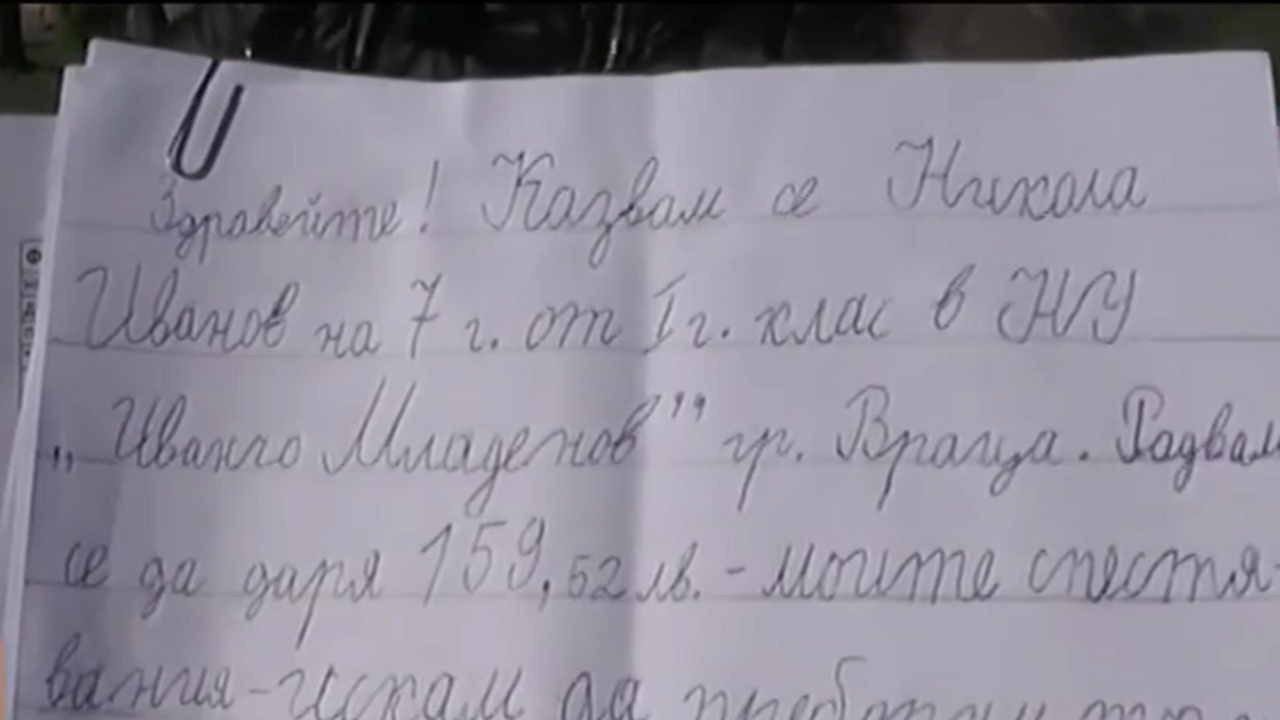 Здравейте! Казвам се Никола
Иванов на 7 г. от I г. клас в НУ
„ Иванчо Младенов” гр. Враца. Радвам
се да даря 159,52 лв. - моите спестя-
вания - искам да